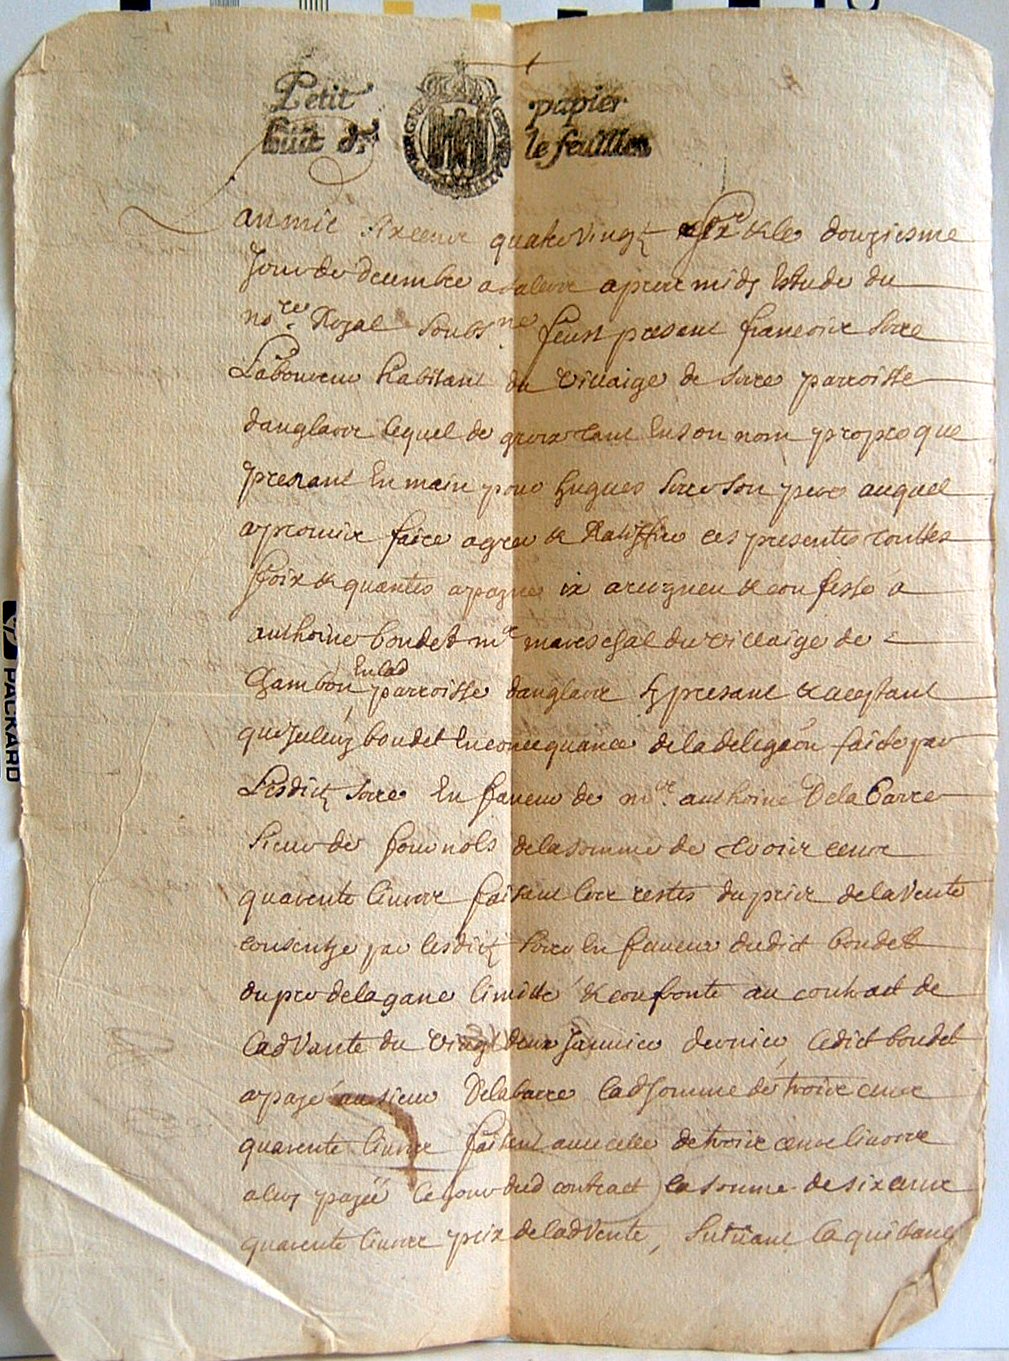 Petit papier
huit d.rs le feuillet
Lan mil sixcens quatrevingt & le douziesme
Jour de decembre a salers apres midy Estude du
no.re Royal soubs.ne feust present francois sorre
Laboureur habitant du villaige de sorre parroisse
danglars lequel de gre tant En son nom propre que
prenant En main pour hugues sorre son pere auquel
a promix faire agreer & Ratiffier ces presentes touttes
foix & quantes a recogneu & confesse a
anthoine boudet m.e mareschal du villaige de
Chambon En lad parroisse danglars Ey present & aceptant
que Jceluy boudet En consequance de la delegaon faicte par
Lesdictz sorre En faveur de m.re anthoine De la Barre
sieur de fournols de la somme de trois cens
quarente livres faisant les restes du prix de la vente
consentye par lesdictz sorre En faveur dudict boudet
du pre de la gane limitte & confronte au contract de
lad Vante du vingt deux Janvier dernier, ledict boudet
a paye au sieur Delabarre lad somme de trois cens
quarente livres faisant avec celle de trois cens livres
a luy payee le jour dud contract la somme de six cens
quarente livres prix de lad Vente, suivant la quitance